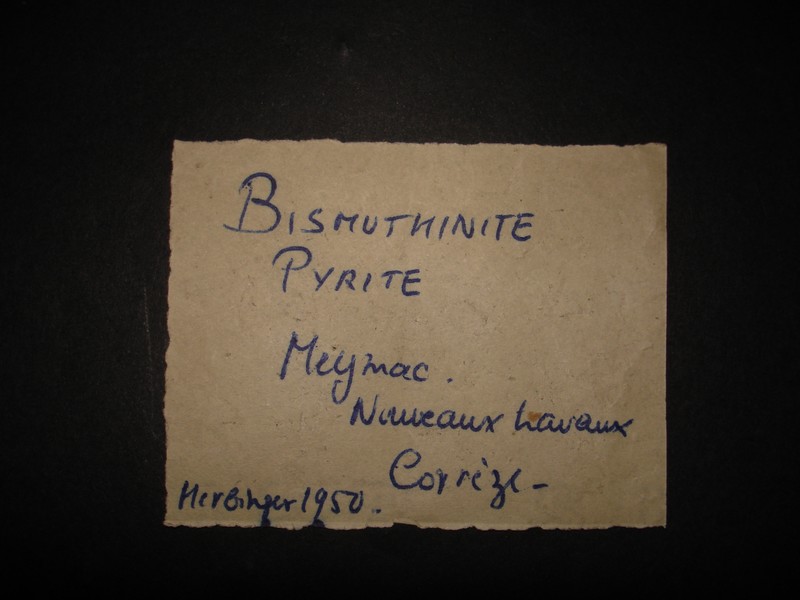 BISMUTHINITE
PYRITE
Meymac.
Nouveaux travaux
Corrèze-
Herbinger 1950.